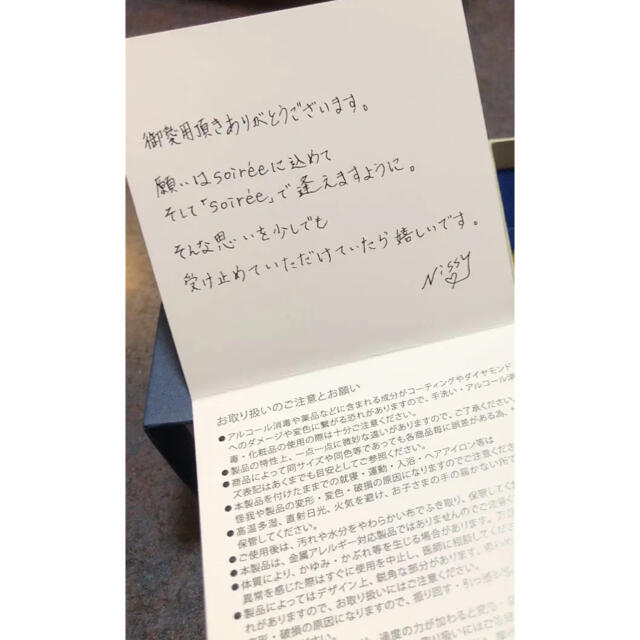 御愛用頂きありがとうございます。
願いはsoiréeに込めて
そして「soirée」で逢えますように。
そんな思いを少しでも
受け止めていただけていたら嬉しいです。
Nissy
お取り扱いのご注意とお願い
●アルコール消毒や薬品などに含まれる成分がコーティングやダイヤモンド
へのダメージや変色に繋がる恐れがありますので、手洗い・アルコール消
毒・化粧品の使用の際は十分ご注意ください。
●製品の特性上、一点一点に微妙な違いがありますので、ご了承ください。
●商品によって同サイズや同色等であっても各商品毎に誤差がある為、
ズ表記はあくまでも目安としてご参照ください。
●本製品を付けたままでの就寝・運動・入浴・ヘアアイロン等は
怪我や製品の変形・変色・破損の原因になりますのでご注意くださ
●高温多湿、直射日光、火気を避け、お子さまの手の届かない所で
保管してください。
●ご使用後は、汚れや水分をやわらかい布でふき取り、保管してく
●本製品は、金属アレルギー対応製品ではありませんのでご注意く
●体質により、かゆみ・かぶれ等を生じる場合があります。万
異常を感じた際はすぐに使用を中止し、医師に相談してくださ
●製品によってはデザイン上、鋭角な部分があります。
れがありますので、お取り扱いにはご注意ください。
変形・破損の原因になりますので、振り回す・引っ張る
過度の力が加わると変形